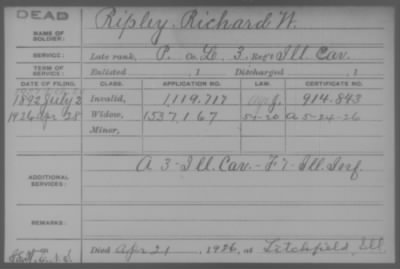 DEAD
NAME OF SOLDIER: Ripley, Richard W.
SERVICE: Late rank, P. Co. L, 3, Reg't Ill. Cav.
TERM OF SERVICE: Enlisted , 1 Discharged , 1
DATE OF FILING. CLASS. APPLICATION NO. LAW. CERTIFICATE NO.
1892 July 2 Invalid, 1,119.717 914.843
1926 Apr 28 Widow, 1537,167 5-1-20 A 5-24-26
Minor,
ADDITIONAL SERVICES: A 3 - Ill. Cav. - F 7 - Ill. Inf.
REMARKS:
Died Apr 21, 1926, at Litchfield, Ill.